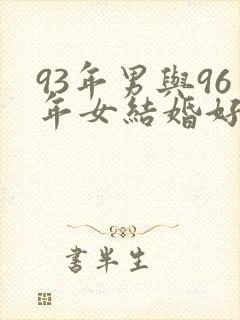 93年男與96
年女結婚好
書半生